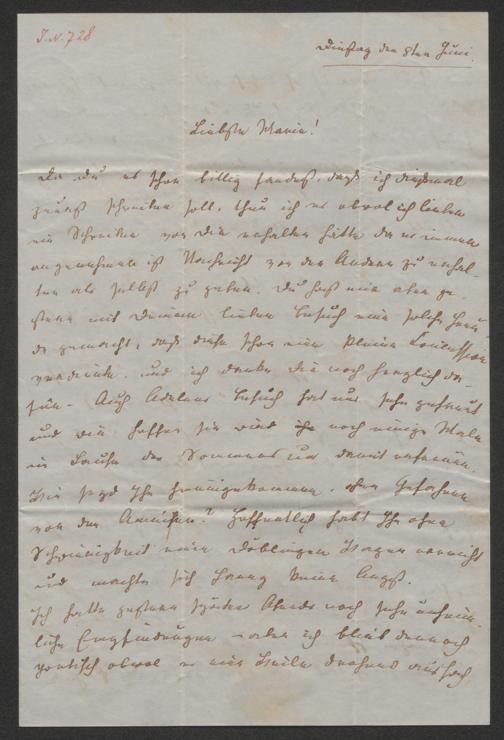 J. N. 728
Dinstag den 8ten Juni.
Liebste Marie!
Da Du es schon billig fandest, daß ich dießmal
zuerst schreiben soll, thue ich es obwol ich lieber
ein Schreiben von Dir erhalten hätte da es immer
angenehmer ist Nachricht von den Andern zu erhal-
ten als selbst zu geben. Du hast mir aber ge-
stern mit Deinem lieben Besuch eine solche Freu-
de gemacht, daß diese schon eine kleine Concession
verdiente. und ich danke Dir noch herzlich da-
für. Auch Adelens Besuch hat uns sehr gefreut
und wir hoffen sie wird ihn noch einige Male
im Laufe des Sommers uns damit erfreuen.
Wie seyd Ihr heimgekommen, ohne Gefahren
von den? Hoffentlich habt Ihr ohne
Schwierigkeit einen Döblinger Wagen erreicht
und machte sich Fanny keine Angst.
Ich hatte gestern später Abends noch sehr unheim-
liche Empfindungen – aber ich blieb dennoch
poetisch obwol es eine Weile drohend aussah